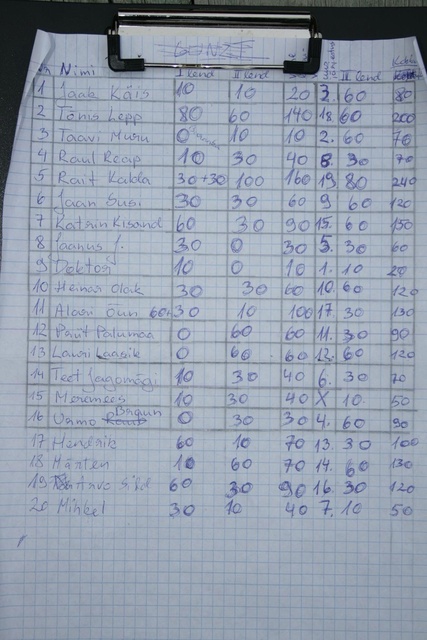 Nimi I lend II lend III lend
1 Jaak Käis 10 10 20 3. 60 80
2 Tõnis Lepp 80 60 140 18 60 200
3 Taavi Muru 0 10 10 2. 60 70
4 Raul Reap 10 30 40 8. 30 70
5 Rait Kabda 30+30 100 160 19 80 240
6 Jaan Susi 30 30 60 9 60 120
7 Katrin Kisand 60 30 90 15. 60 150
8 Jaanus J. 30 0 30 5. 30 60
9 Doktor 10 0 10 1. 10 20
10 Heinar 30 30 60 10. 60 120
11 Alari Õun 60+30 10 100 17. 30 130
12 Priit Palumaa 0 60 60 11. 30 90
13 Lauri Laasik 0 60 60 12. 60 120
14 Teet Jagomägi 10 30 40 6. 30 70
15 Meremees 10 30 40 X 10 50
16 Urmo 0 30 30 4. 60 90
17 Hendrik 60 10 70 13. 30 100
18 Märten 10 60 70 14. 60 130
19 Arvo Sild 60 30 90 16. 30 120
20 Mihkel 30 10 40 7. 10 50